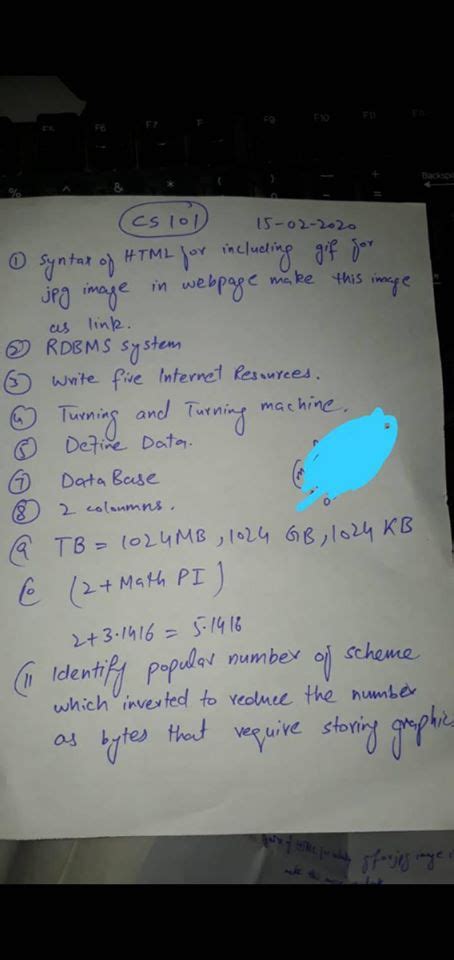 CS 101 15-02-2020
① Syntax of HTML for including gif for
jpg image in webpage make this image
as link.
② RDBMS system
③ Write five Internet Resources.
④ Turning and Turning machine.
⑤ Define Data.
⑦ Data Base
⑧ 2 coloumns.
9 TB = 1024MB, 1024 GB, 1024 KB
10 (2 + Math PI)
2 + 3.1416 = 5.1416
11 Identify popular number of scheme
which inverted to reduce the number
as bytes that require storing graphic